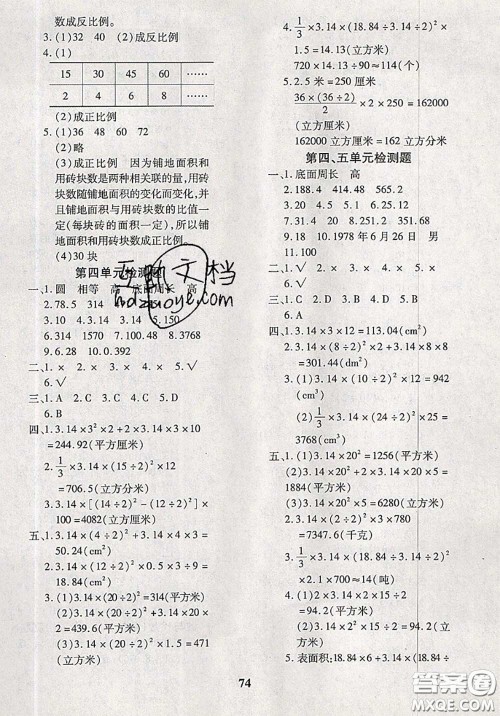 数成反比例。
3.(1)32 40 (2)成反比例
4.(1)
15 30 45 60 ……
2 4 6 8 ……
(2)成正比例
5.(1)36 48 60 72
(2)略
(3)成正比例 因为铺地面积和
用砖块数是两种相关联的量,用砖
块数随铺地面积的变化而变化,并
且铺地面积与砖块数的比值一
定(每块砖的面积一定),所以铺
地面积和用砖块数成正比例。
(4)30 块
第四单元检测题
一、1.圆 相等 高 底面周长 高
2.78.5 314 4.
3.10 4.3.14 5.150
6.314 1570 7.100.48 8.3768
9.6.28 10.3.39
二、1.× 2.× 3.× 4.× 5.√
6.√
三、1.A 2.C 3.A 4.D 5.D
6.B
四、1.3.14×3²×2+3.14×3×10
=244.92(平方厘米)
2.1/3×3.14×(15÷2)²×12
=706.5(立方分米)
3.3.14×[(14÷2)²-(12÷2)²]×
100=4082(立方厘米)
五、1.3.14×(4÷2)²+3.14×4×3=
50.24(cm²)
2.3.14×(12÷2)²×0.5×3÷9=
18.84(cm²)
3.(1)3.14×(20÷2)²=314(平方米)
(2)3.14×(20÷2)²+3.14×20×
2=439.6(平方米)
(3)3.14×(20÷2)²×1.5=471
(立方米)
4.3.14×(18.84÷3.14÷2)²×
1.5=14.13(立方米)
720×14.13÷90≈114(个)
5.2.5米=250厘米
36×(36÷2)/2×2×250=162000
(立方厘米)
162000立方厘米=162立方分米
第四、五单元检测题
一、1.底面周长 高
2.188.4 414.48 565.2
3.200.96 4.301.44
5.4.5 1.5 6.3 7.16
8.5 9.18 10.1978年6月26日 男
11.100
二、1.√ 2.× 3.× 4.√ 5.√
三、1.C 2.B 3.B 4.A 5.B
四、1.3.14×3×12=113.04(cm²)
2.3.14×(8÷2)²×2+3.14×8×8
=301.44(dm²)
3.(1)3.14×(10÷2)²×12=942
(cm³)
(2)1/3×3.14×(24÷2)²×25=
3768(cm³)
五、1.(1)3.14×20²=1256(平方米)
(2)3.14×20²+3.14×20×2×5=
1884(平方米)
(3)3.14×20²×5=6280(立方米)
2.3.14×(2÷2)²×3×780
=7347.6(千克)
3.1/3×3.14×(18.84÷3.14÷2)²
×2.1×0.7≈14(吨)
4.(1)3.14×2×15÷2+3.14×(2÷2)²
=94.2(平方米)
(2)3.14×(2÷2)²×15÷2
=23.55(立方米)
5.表面积:18.84×6+3.14×(18.84÷
74
互助文档
hdzuoye.com
答案圈
MXQE.COM